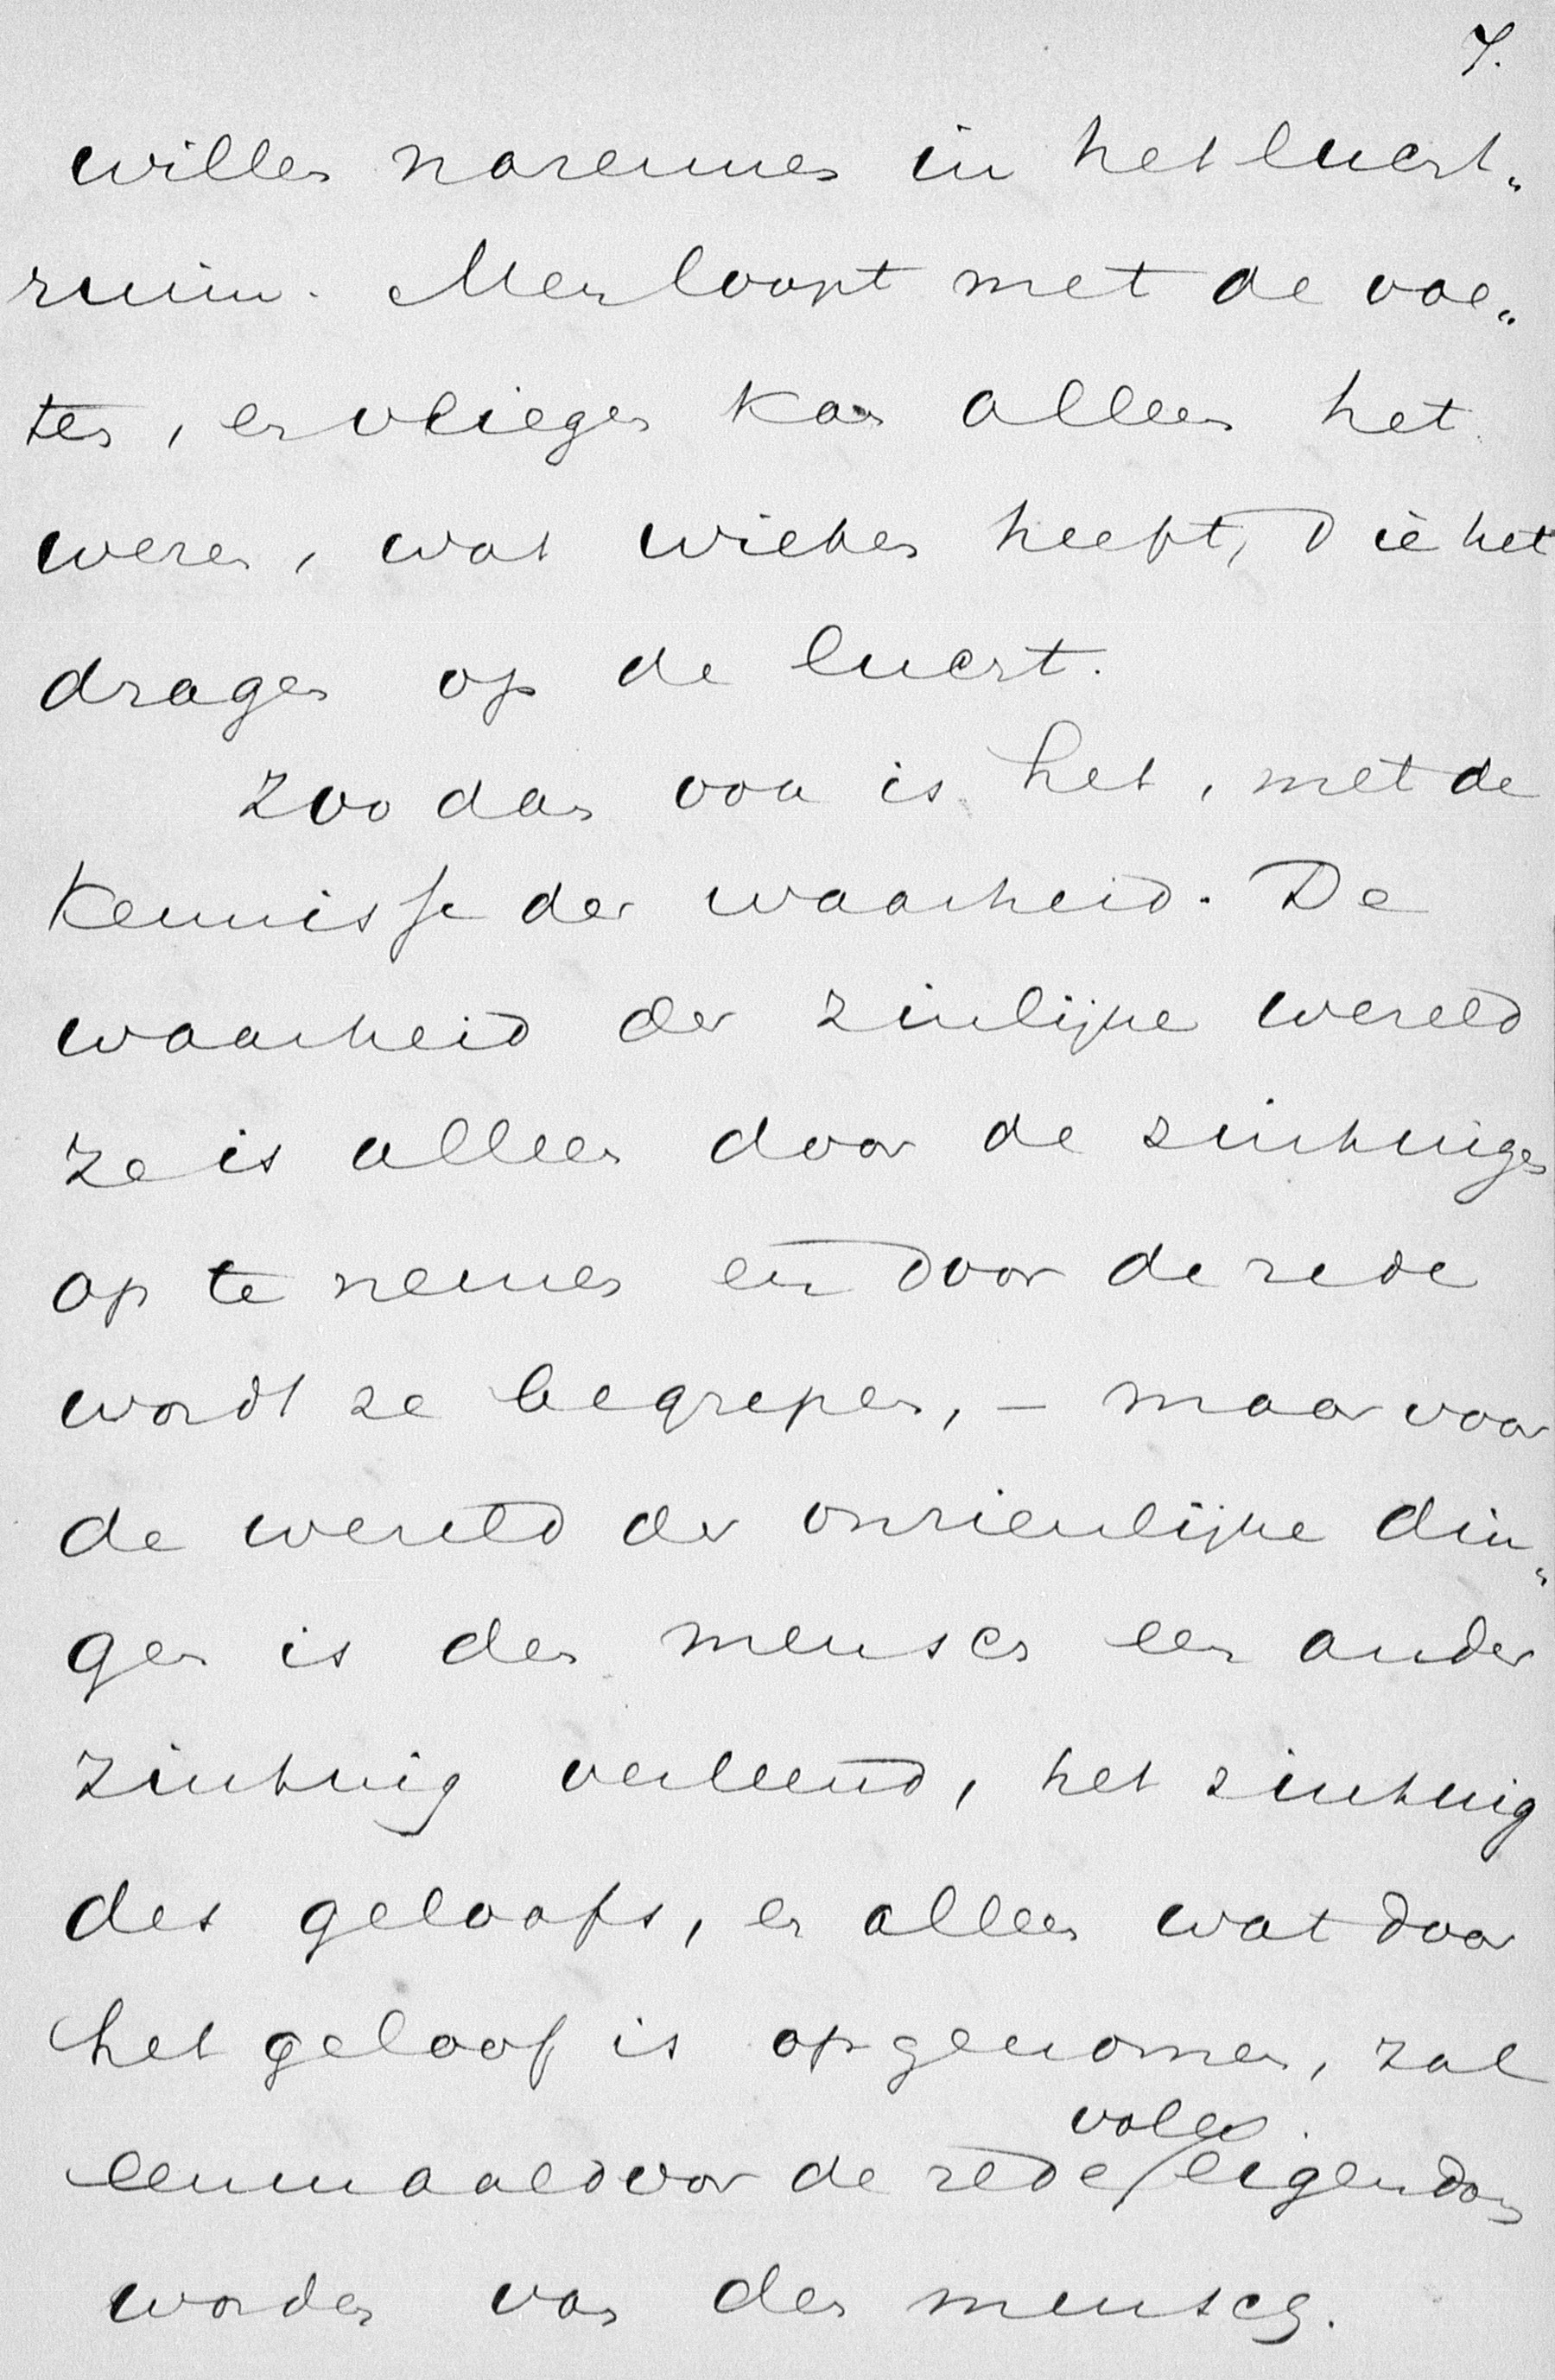 7.
willen narennen in het lucht„
ruim. Men loopt met de voe„
ten, en vliegen kan alleen het
wezen, wat wieken heeft, die het
dragen op de lucht.
Zoo dan ook is het, met de
Kennisse der waarheid. De
waarheid der zinlijke wereld
ze is alleen door de zintuigen
op te nemen en door de rede
wordt ze begrepen, – maar voor
de wereld der onzienlijke din„
gen is den mensch een ander
zintuig verleend, het zintuig
des geloofs, en alleen wat door
het geloof is opgenomen, zal
vollen
eenmaal door de rede / eigendom
worden van den mensch.